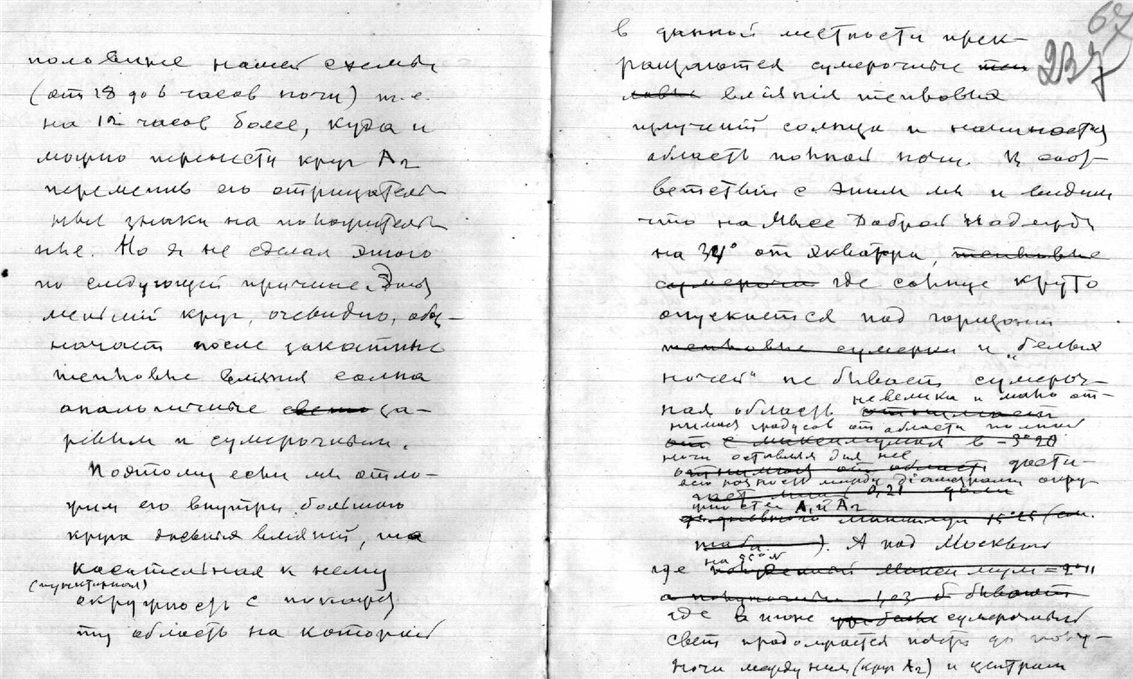 половине нашей схемы
(от 18 до 6 часов ночи) т.е.
на 12 часов более, куда и
можно перенести круг А2
переменив его отрицатель-
ные знаки на положитель-
ные. Но я не сделал этого
по следующей причине. Этот
меньший круг, очевидно, обоз-
начает после закатные
тепловые влияния солнца
аналогичные свето за-
ревым и сумеречным.
Поэтому если мы отло-
жим его внутри большого
круга дневных влияний, то
касательная к нему
(пунктирная)
окружность с покажет
ту область на которой
67
237
в данной местности прек-
ращаются сумеречные теп
ловые влияния тепловых
излучений солнца и начинается
область полной ночи. В соот-
ветствии с этим мы и видим
что на Мысе Доброй Надежды
на 34° от экватора, тепловые
сумерки где солнце круто
опускается под горизонт
тепловые сумерки и „белых
ночей" не бывает сумереч-
ная область невелика и мало от-
нимая градусов от области полной
с максимумом в -3°20
ночи оставляя для нее
отнимая от области дости-
всю разность между диаметрами окру-
0,21 доли
жностей А1 и А2
дневного 15°25 (см.
). А под Москвой
на 55° N
где максимум = 2°11
а бывают
где в июне сумеречный
свет продолжается почти до полу-
ночи между ним (круг А2) и центром